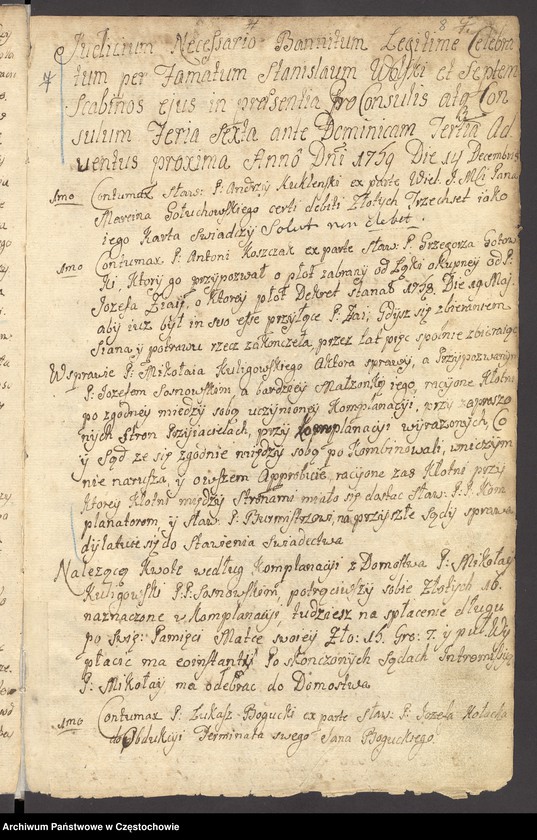 Judicium Necessario Bannitum Legitime Celebra
tum per Famatum Stanislaum Wolski et Septem
Scabinos ejus in presentia ProConsulis atq Con
sulum Feria Sexta ante Dominicam Tertia Ad
ventus proxima Anno Dni 1759 Die 14 Decembris
1mo Contumax Sław: P: Andrzy Kuklenski ex parte Wiel: J: Mści Pana
Marcina Gołuchowskiego certi debiti Złotych Trzechset iako
iego Karta swiadczy Solvit non debet
1mo Contumax P: Antoni Koszczak ex parte Sław: P: Grzegorza Gotow
ki, Ktory go przypozwał o płot zabrany od Łąki okupney od P:
Jozefa o Ktorey płot Dekret stanął 1758 Die 19 Maj.
aby iuz był in suo esse przyłące P: Gdysz się zbieraniem
Siana y potrawu rzecz zakonczeła, przez lat pięc spolnie zbieraiąc
W sprawie P: Mikołaia Kuligowskiego Aktora sprawy, a Przypozwanym
P: Jozefem Sosnowskim a bardziey Małzonką iego, racyone Kłotni
po zgodney między sobą uczynioney Komplanacyi, przy zaproszo
nych Stron Przyiacielach, przy komplanacyi wyrazonych, Co
y Sąd ze się zgodnie między sobą po Kombinowali, wniczym
nie narusza, y owszem Approbuie, racyone zas Kłotni przy
Ktorey Kłotni między Stronami miało się dostac Sław: P: P: Kom
planatorom, y Sław: P: Burmistrzowi, na przyszłe Sądy sprawa
dylatuie się do Stawienia swiadectwa
Nalezącą Kwotę według Komplanacyi z Domostwa P: Mikołay
Kuligowski P:P: Sosnowskim, potrąciwszy sobie Złotych 10
naznaczone w Komplanacyi, tudziesz na spłacenie długu
po Swię: Pamięci Matce swoiey Zło: 15. Gro: 7. y puł. Wy
płacic ma eoinstanti Po skonczonych Sądach Intromissyą
P: Mikołay ma odebrac do Domostwa
1mo Contumax P: Łukasz Bogucki ex parte Sław: P: Jozefa Kołacza
do Obdukcyi Terminata swego Jana Boguckiego
Archiwum Państwowe w Częstochowie